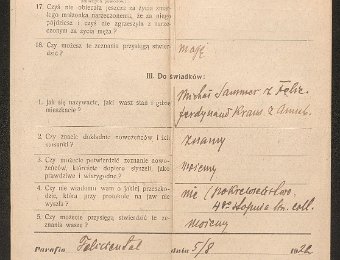 17. Czyś nie obiecała jeszcze za życia swojego
małżonka narzeczonemu, że za niego
pójdziesz i czyś nie zgrzeszyła z narzeczonym
za życia męża?
18. Czy możesz te zeznania przysięgą stwierdzić?
mogę
III. Do świadków:
1. Jak się nazywacie, jaki wasz stan i gdzie
mieszkacie?
Michał Sammer z Felic.
Ferdynand Kraus z
2. Czy znacie dokładnie nowożeńców i ich
stosunki?
znamy
3. Czy możecie potwierdzić zeznanie nowożeńców,
któreście dopiero słyszeli, jako
prawdziwe i wiarygodne?
możemy
4. Czy nie wiadomo wam o jakiej przeszkodzie,
która przy prośbie na jaw nie
wyszła?
nie (pokrewieństwo
4go stopnia lin. coll.
5. Czy możecie przysięgą stwierdzić te zeznania
wasze?
możemy
Parafia Feliciental dnia 5/8 192